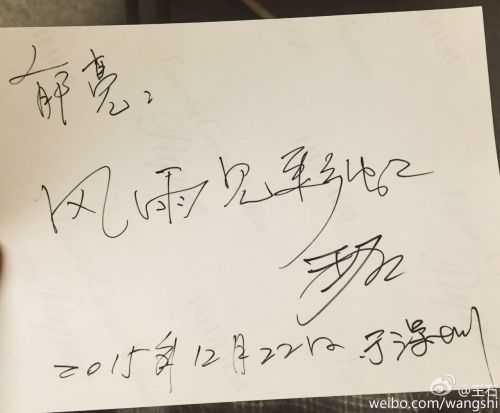 郁亮:
风雨见彩虹
王石
2015年12月22日 于深圳
@王石
weibo.com/wangshi